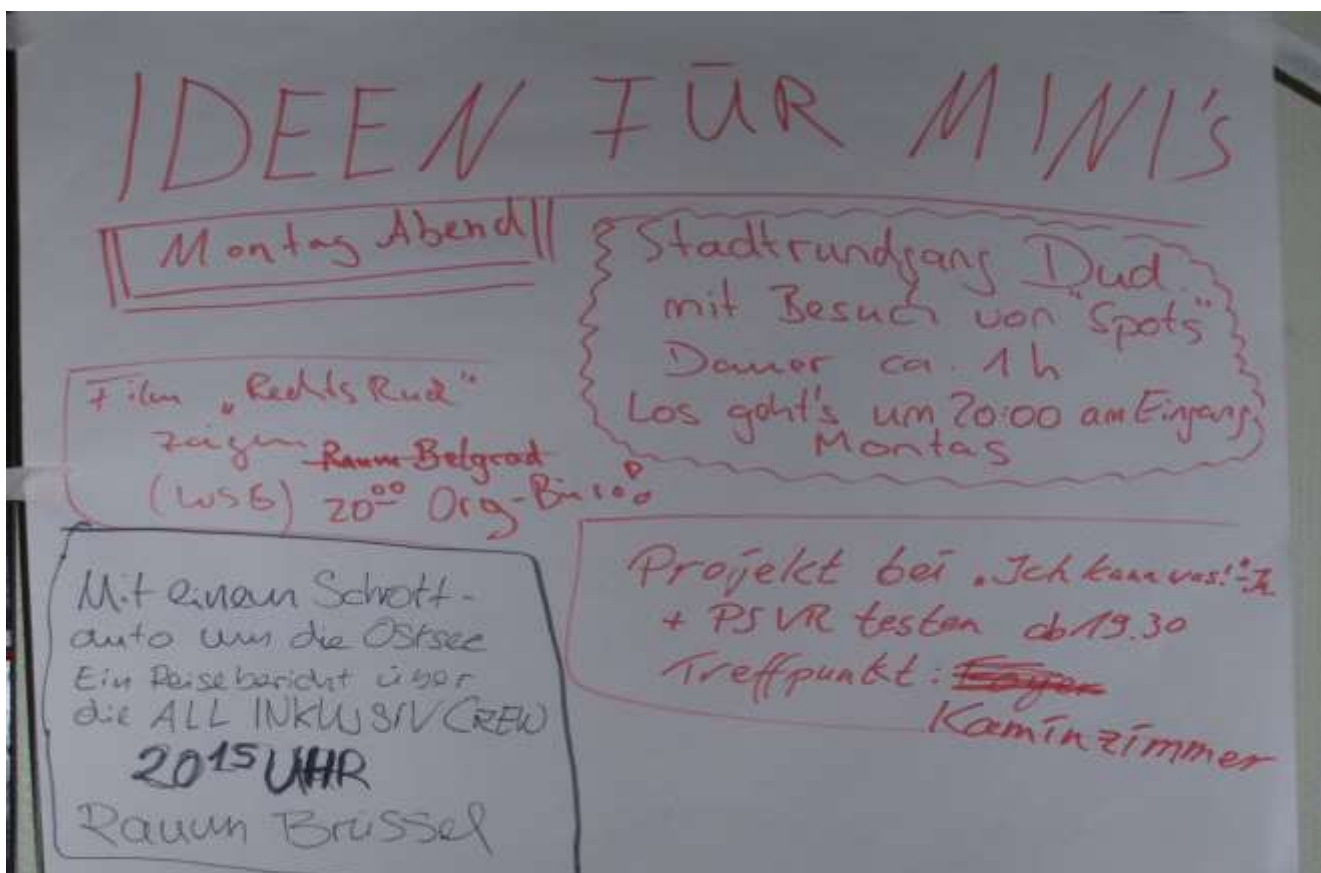 IDEEN FÜR MINI's
Montag Abend
Stadtrundgang Dud.
mit Besuch von "Spots"
Dauer ca. 1 h
Los geht's um 20:00 am Eingang
Montag
Film „Rechts Ruck"
zeigen Raum Belgrad
20⁰⁰ Org-Büro
Mit einem Schrott-
auto um die Ostsee
Ein Reisebericht über
die ALL INKLUSIV CREW
20¹⁵ UHR
Raum Brüssel
Projekt bei „Ich kann was!"-
+ PSVR testen ab 19.30
Treffpunkt:
Kaminzimmer